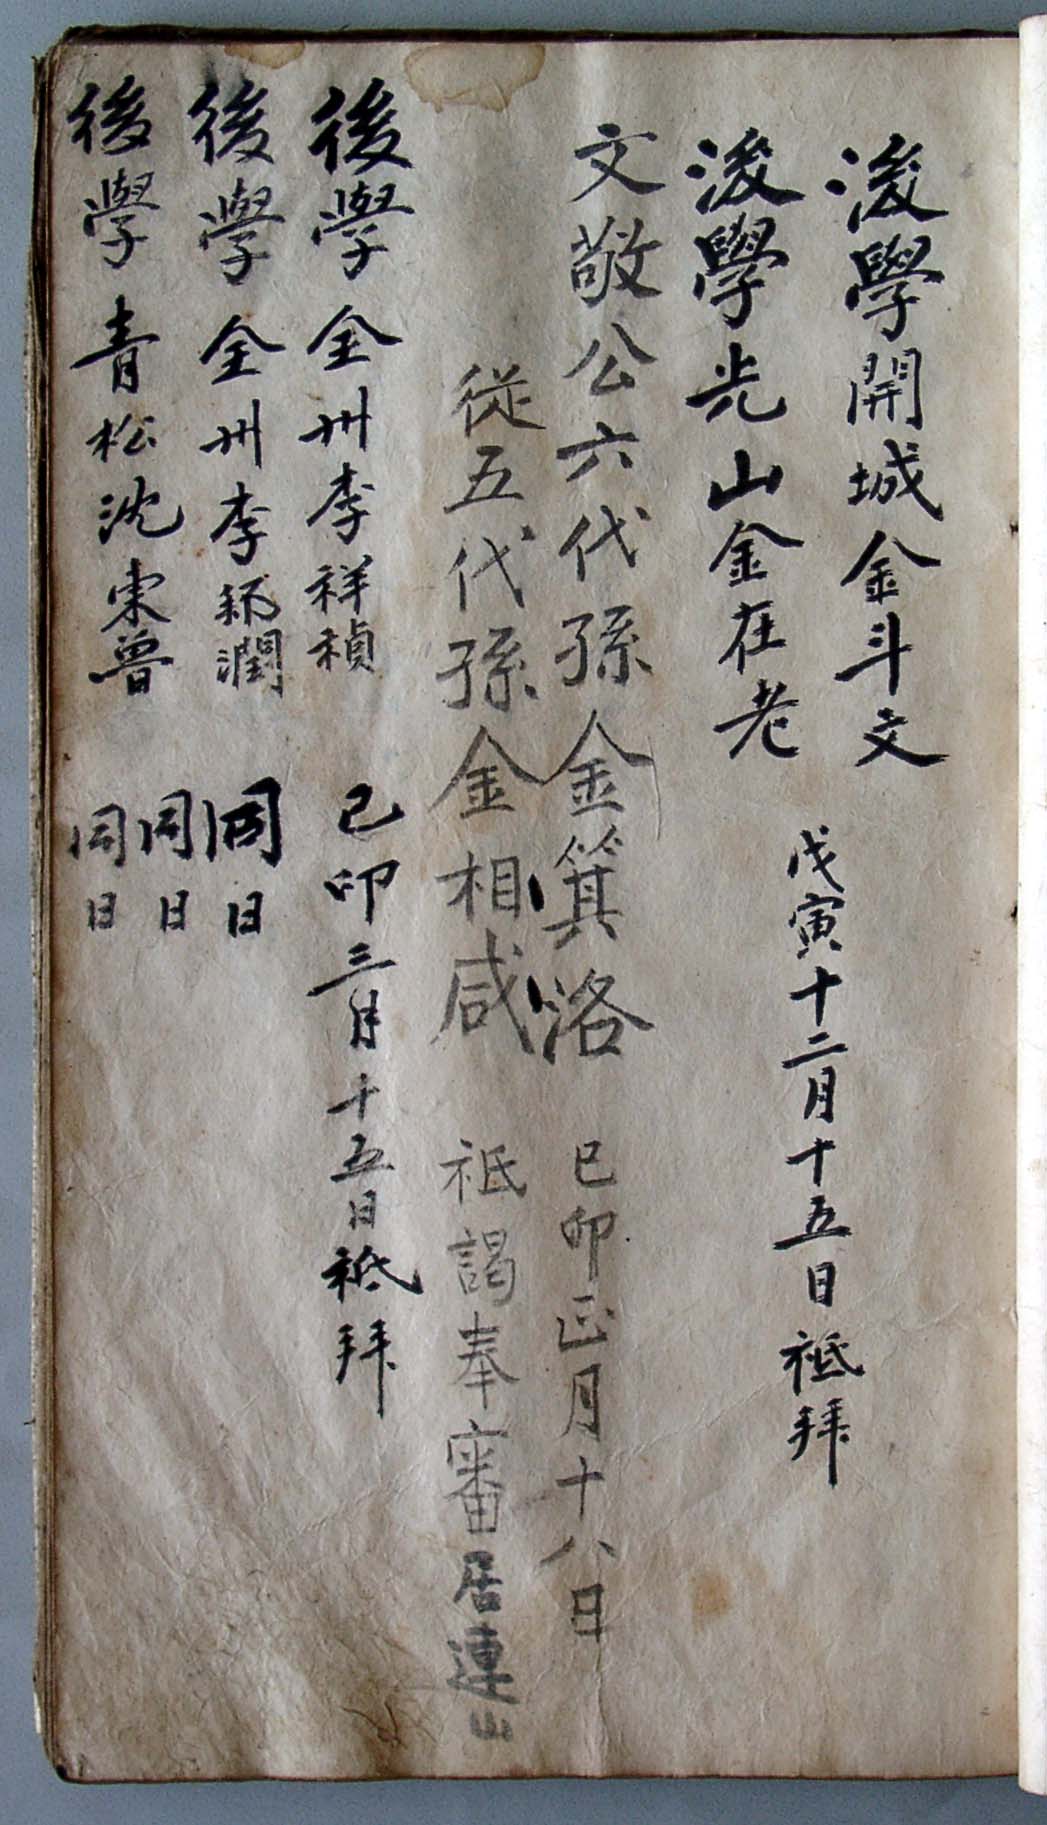 後學開城金斗文
戊寅十二月十五日祗拜
後學光山金在老
文敬公六代孫金箕洛 己卯正月十八日
從五代孫金相咸 祗謁奉審居連山
後學全州李祥禎 己卯三月十五日祗拜
後學全州李 潤 同日
同日
後學青松沈宋魯 同日